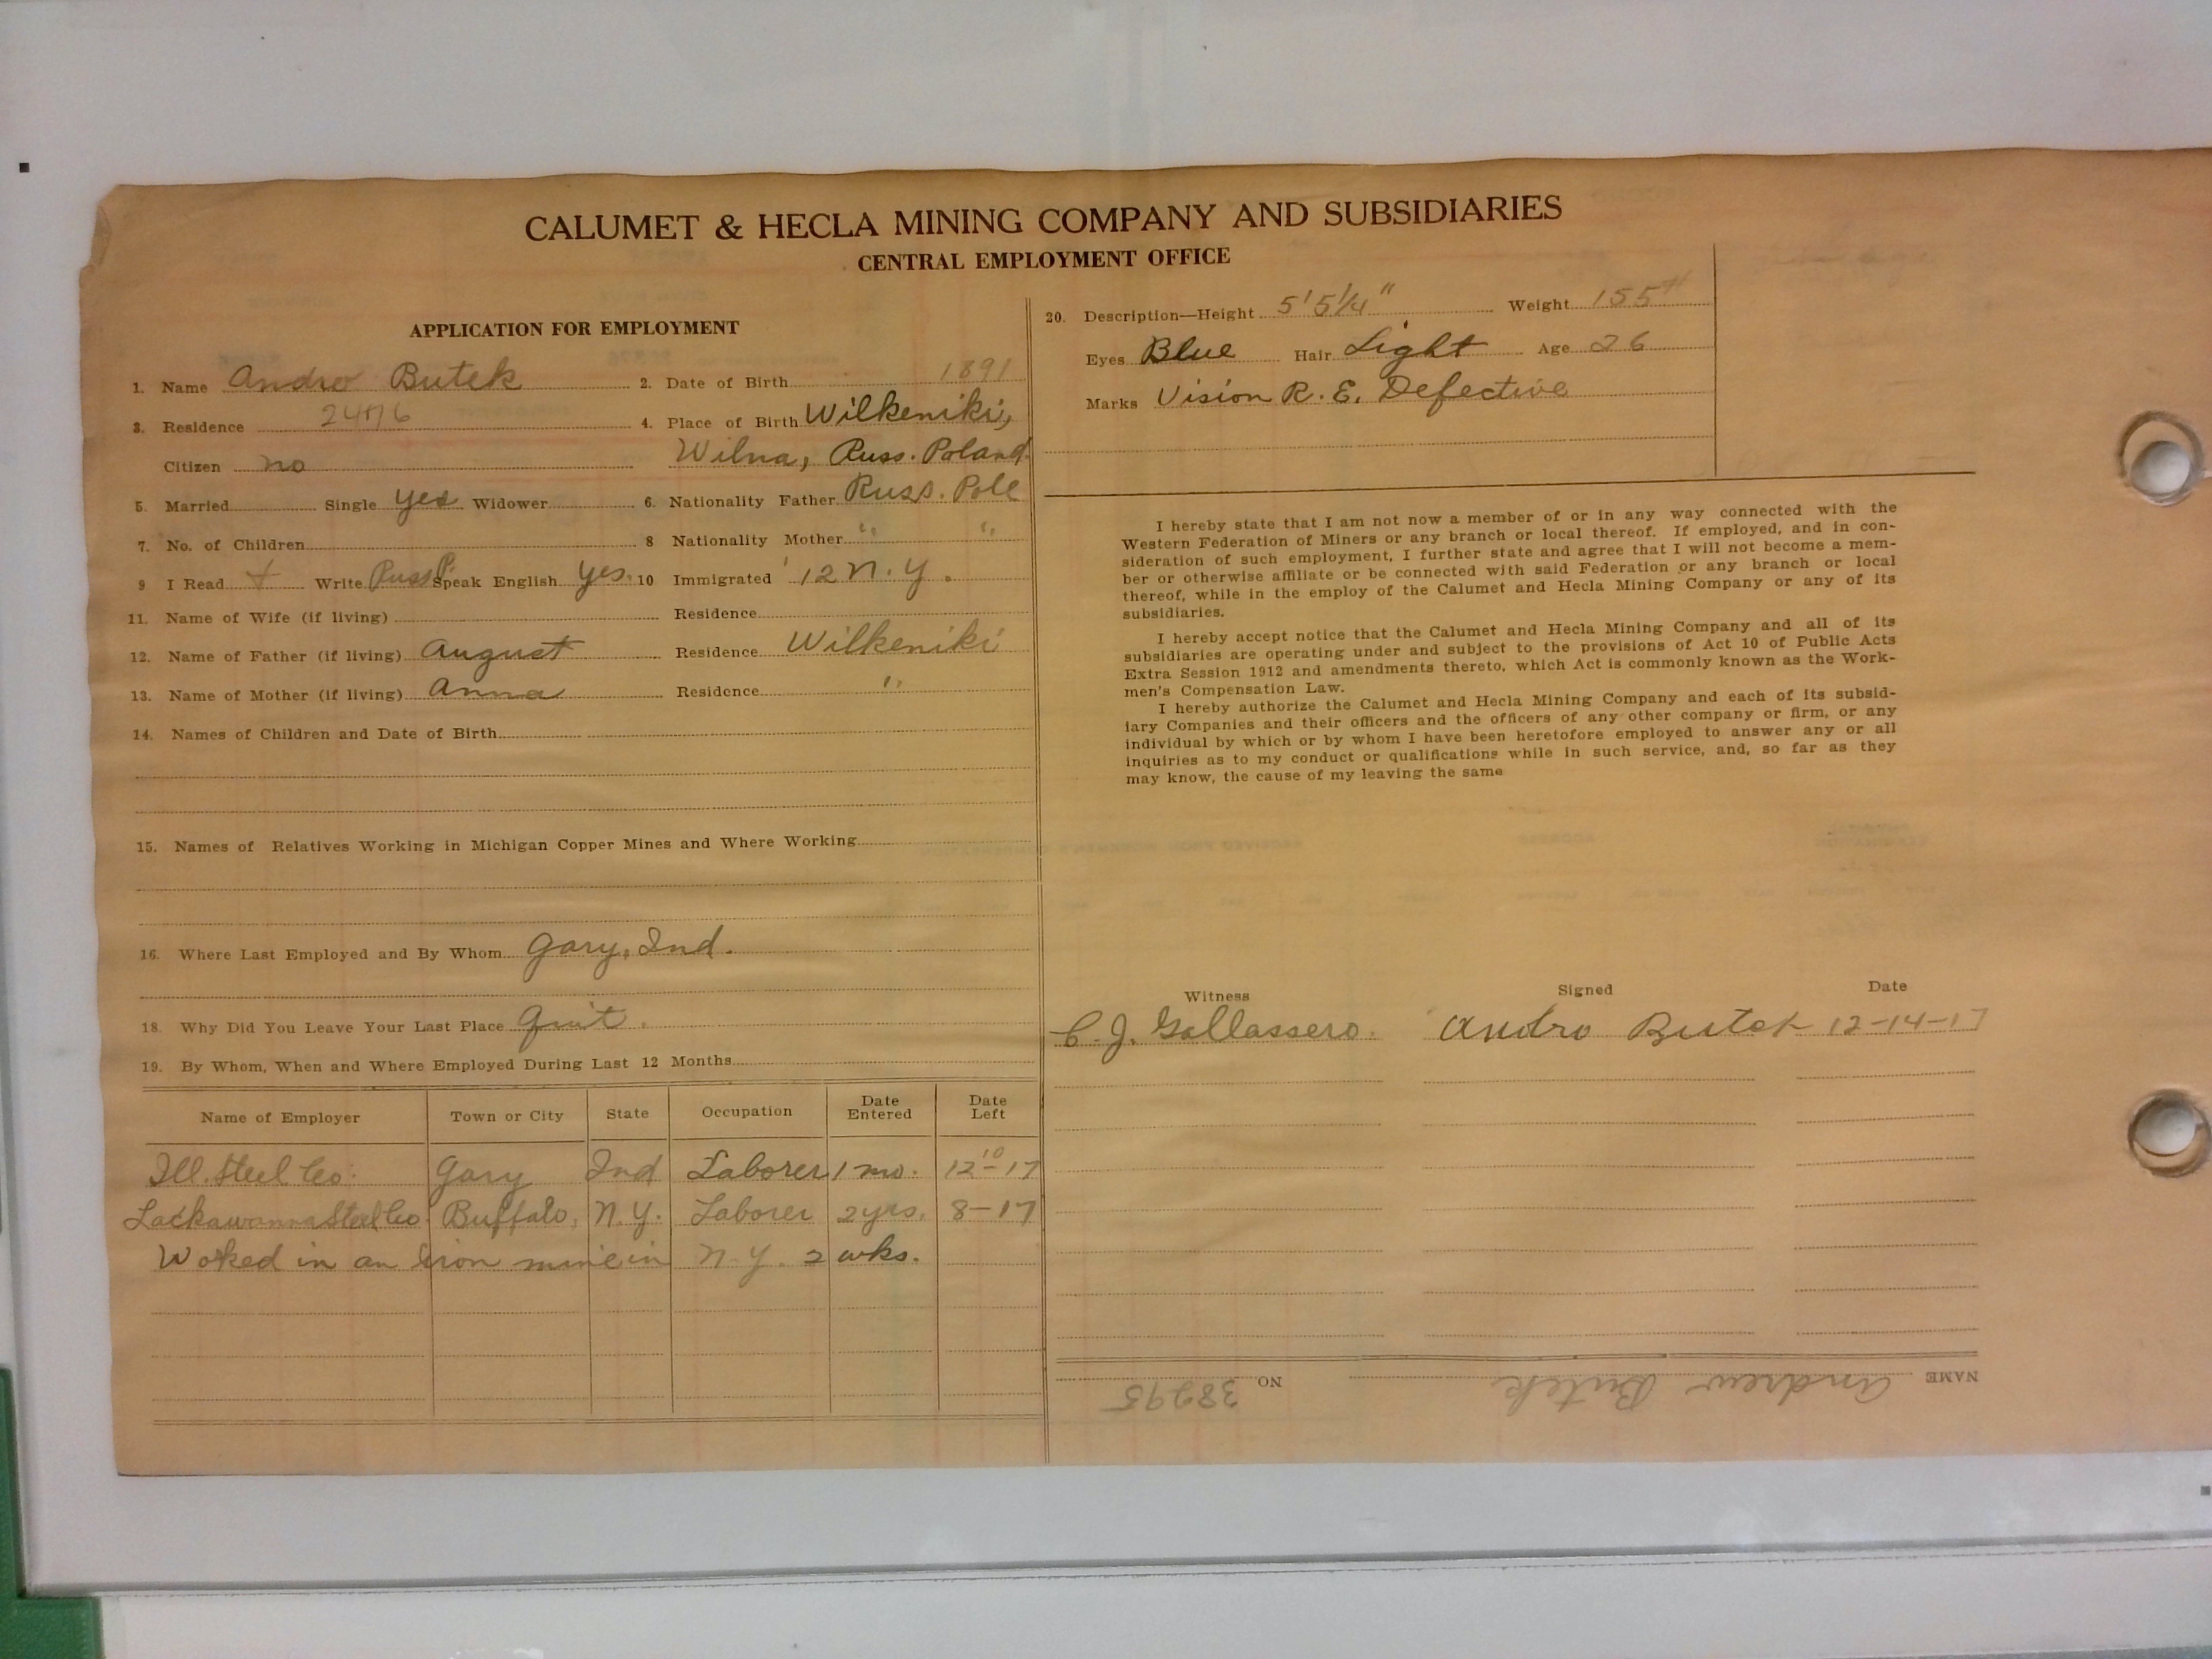 CALUMET & HECLA MINING COMPANY AND SUBSIDIARIES
CENTRAL EMPLOYMENT OFFICE
APPLICATION FOR EMPLOYMENT
1. Name Andro Butek 2. Date of Birth 1891
3. Residence 4. Place of Birth Wilkeniki,
Citizen no Wilna, Russ. Poland
5. Married Single yes Widower 6. Nationality Father Russ. Pole
7. No. of Children 8 Nationality Mother " "
9 I Read + Write Russ P. Speak English yes. 10 Immigrated '12 N.Y.
11. Name of Wife (if living) Residence
12. Name of Father (if living) August Residence Wilkeniki
13. Name of Mother (if living) Anna Residence "
14. Names of Children and Date of Birth
15. Names of Relatives Working in Michigan Copper Mines and Where Working
16. Where Last Employed and By Whom Gary, Ind.
18. Why Did You Leave Your Last Place Quit.
19. By Whom, When and Where Employed During Last 12 Months
Name of Employer Town or City State Occupation Date Entered Date Left
Ill. Steel Co. Gary Ind Laborer 1 mo. 12-10-17
Lackawanna Steel Co Buffalo, N.Y. Laborer 2 yrs. 8-17
Woked in an iron mine in N.Y. 2 wks.
20. Description—Height 5' 5 1/4" Weight 155#
Eyes Blue Hair Light Age 26
Marks Vision R. E. Defective
I hereby state that I am not now a member of or in any way connected with the
Western Federation of Miners or any branch or local thereof. If employed, and in con-
sideration of such employment, I further state and agree that I will not become a mem-
ber or otherwise affiliate or be connected with said Federation or any branch or local
thereof, while in the employ of the Calumet and Hecla Mining Company or any of its
subsidiaries.
I hereby accept notice that the Calumet and Hecla Mining Company and all of its
subsidiaries are operating under and subject to the provisions of Act 10 of Public Acts
Extra Session 1912 and amendments thereto, which Act is commonly known as the Work-
men's Compensation Law.
I hereby authorize the Calumet and Hecla Mining Company and each of its subsid-
iary Companies and their officers and the officers of any other company or firm, or any
individual by which or by whom I have been heretofore employed to answer any or all
inquiries as to my conduct or qualifications while in such service, and, so far as they
may know, the cause of my leaving the same
Witness Signed Date
C. J. Gallassero. Andro Butek 12-14-17
NAME Andrew Butek NO 38295